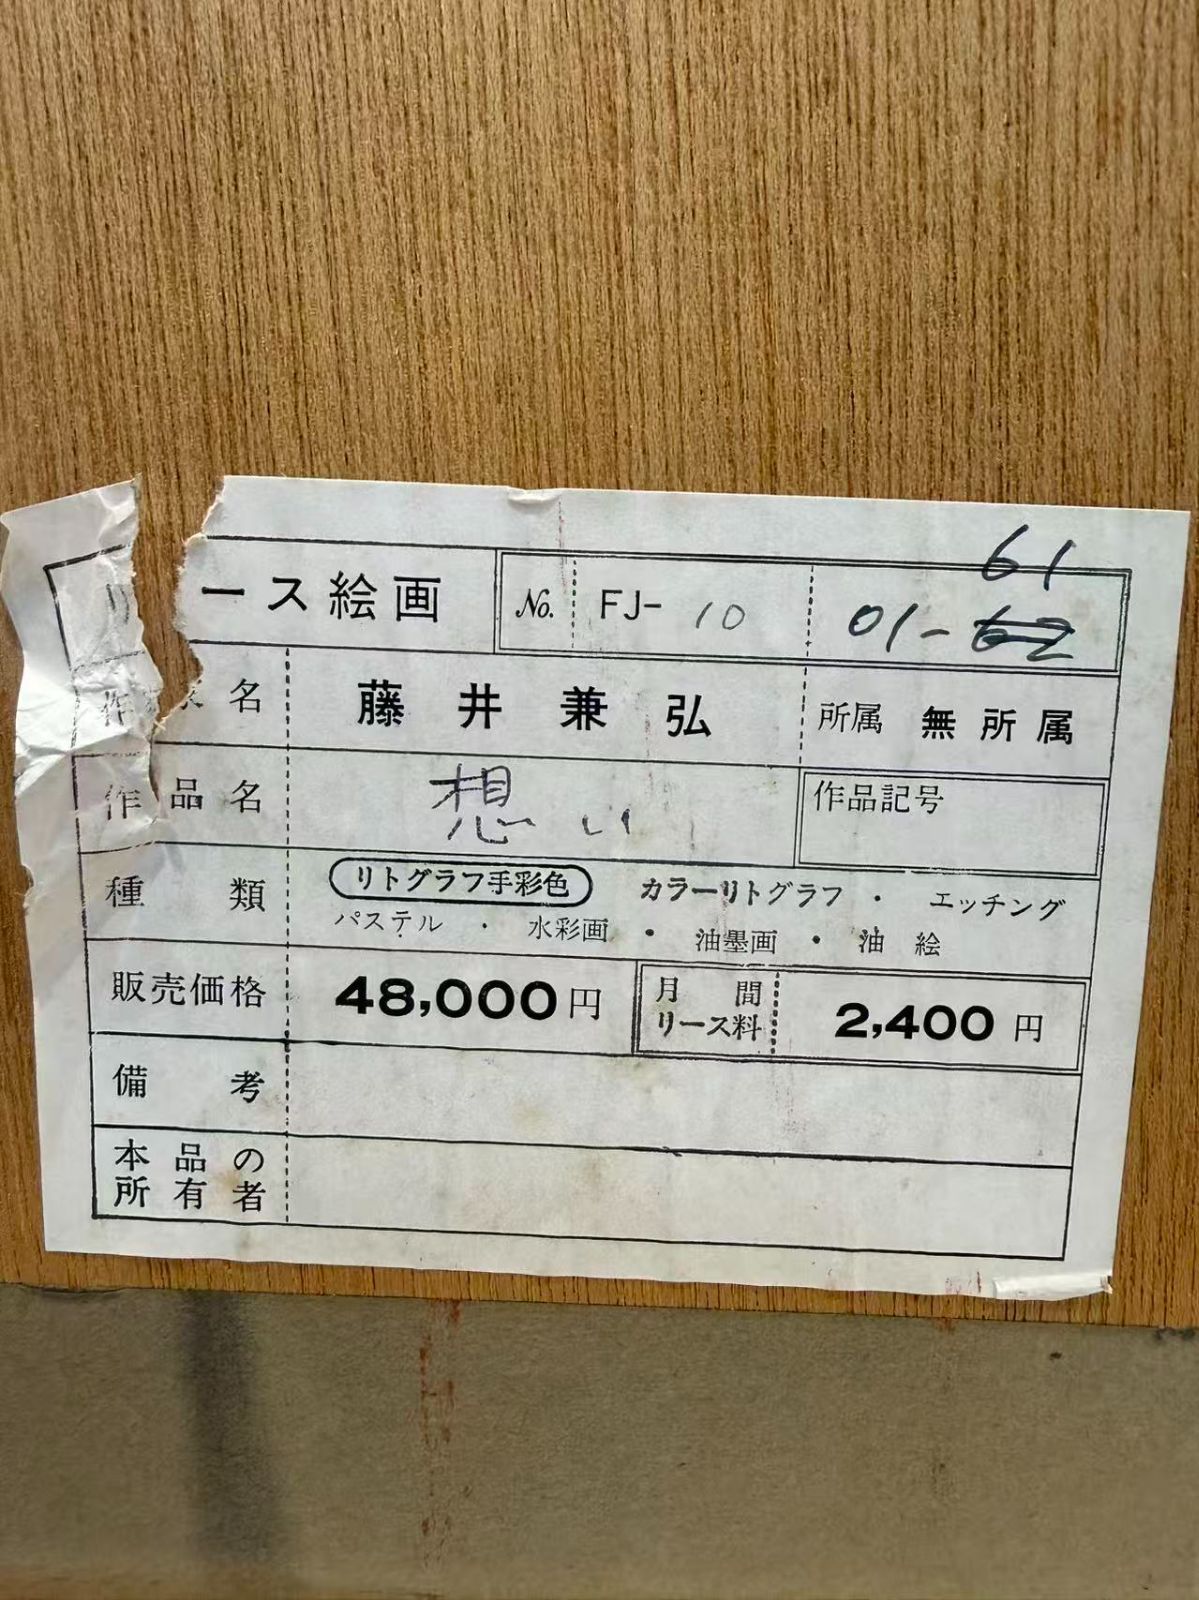 リース絵画 No. FJ- 10 01-62 61
作家名 藤井兼弘 所属 無所属
作品名 想い 作品記号
種類 リトグラフ手彩色 カラーリトグラフ ・ エッチング
パステル ・ 水彩画 ・ 油墨画 ・ 油絵
販売価格 48,000円 月間リース料 2,400円
備考
本品の
所有者